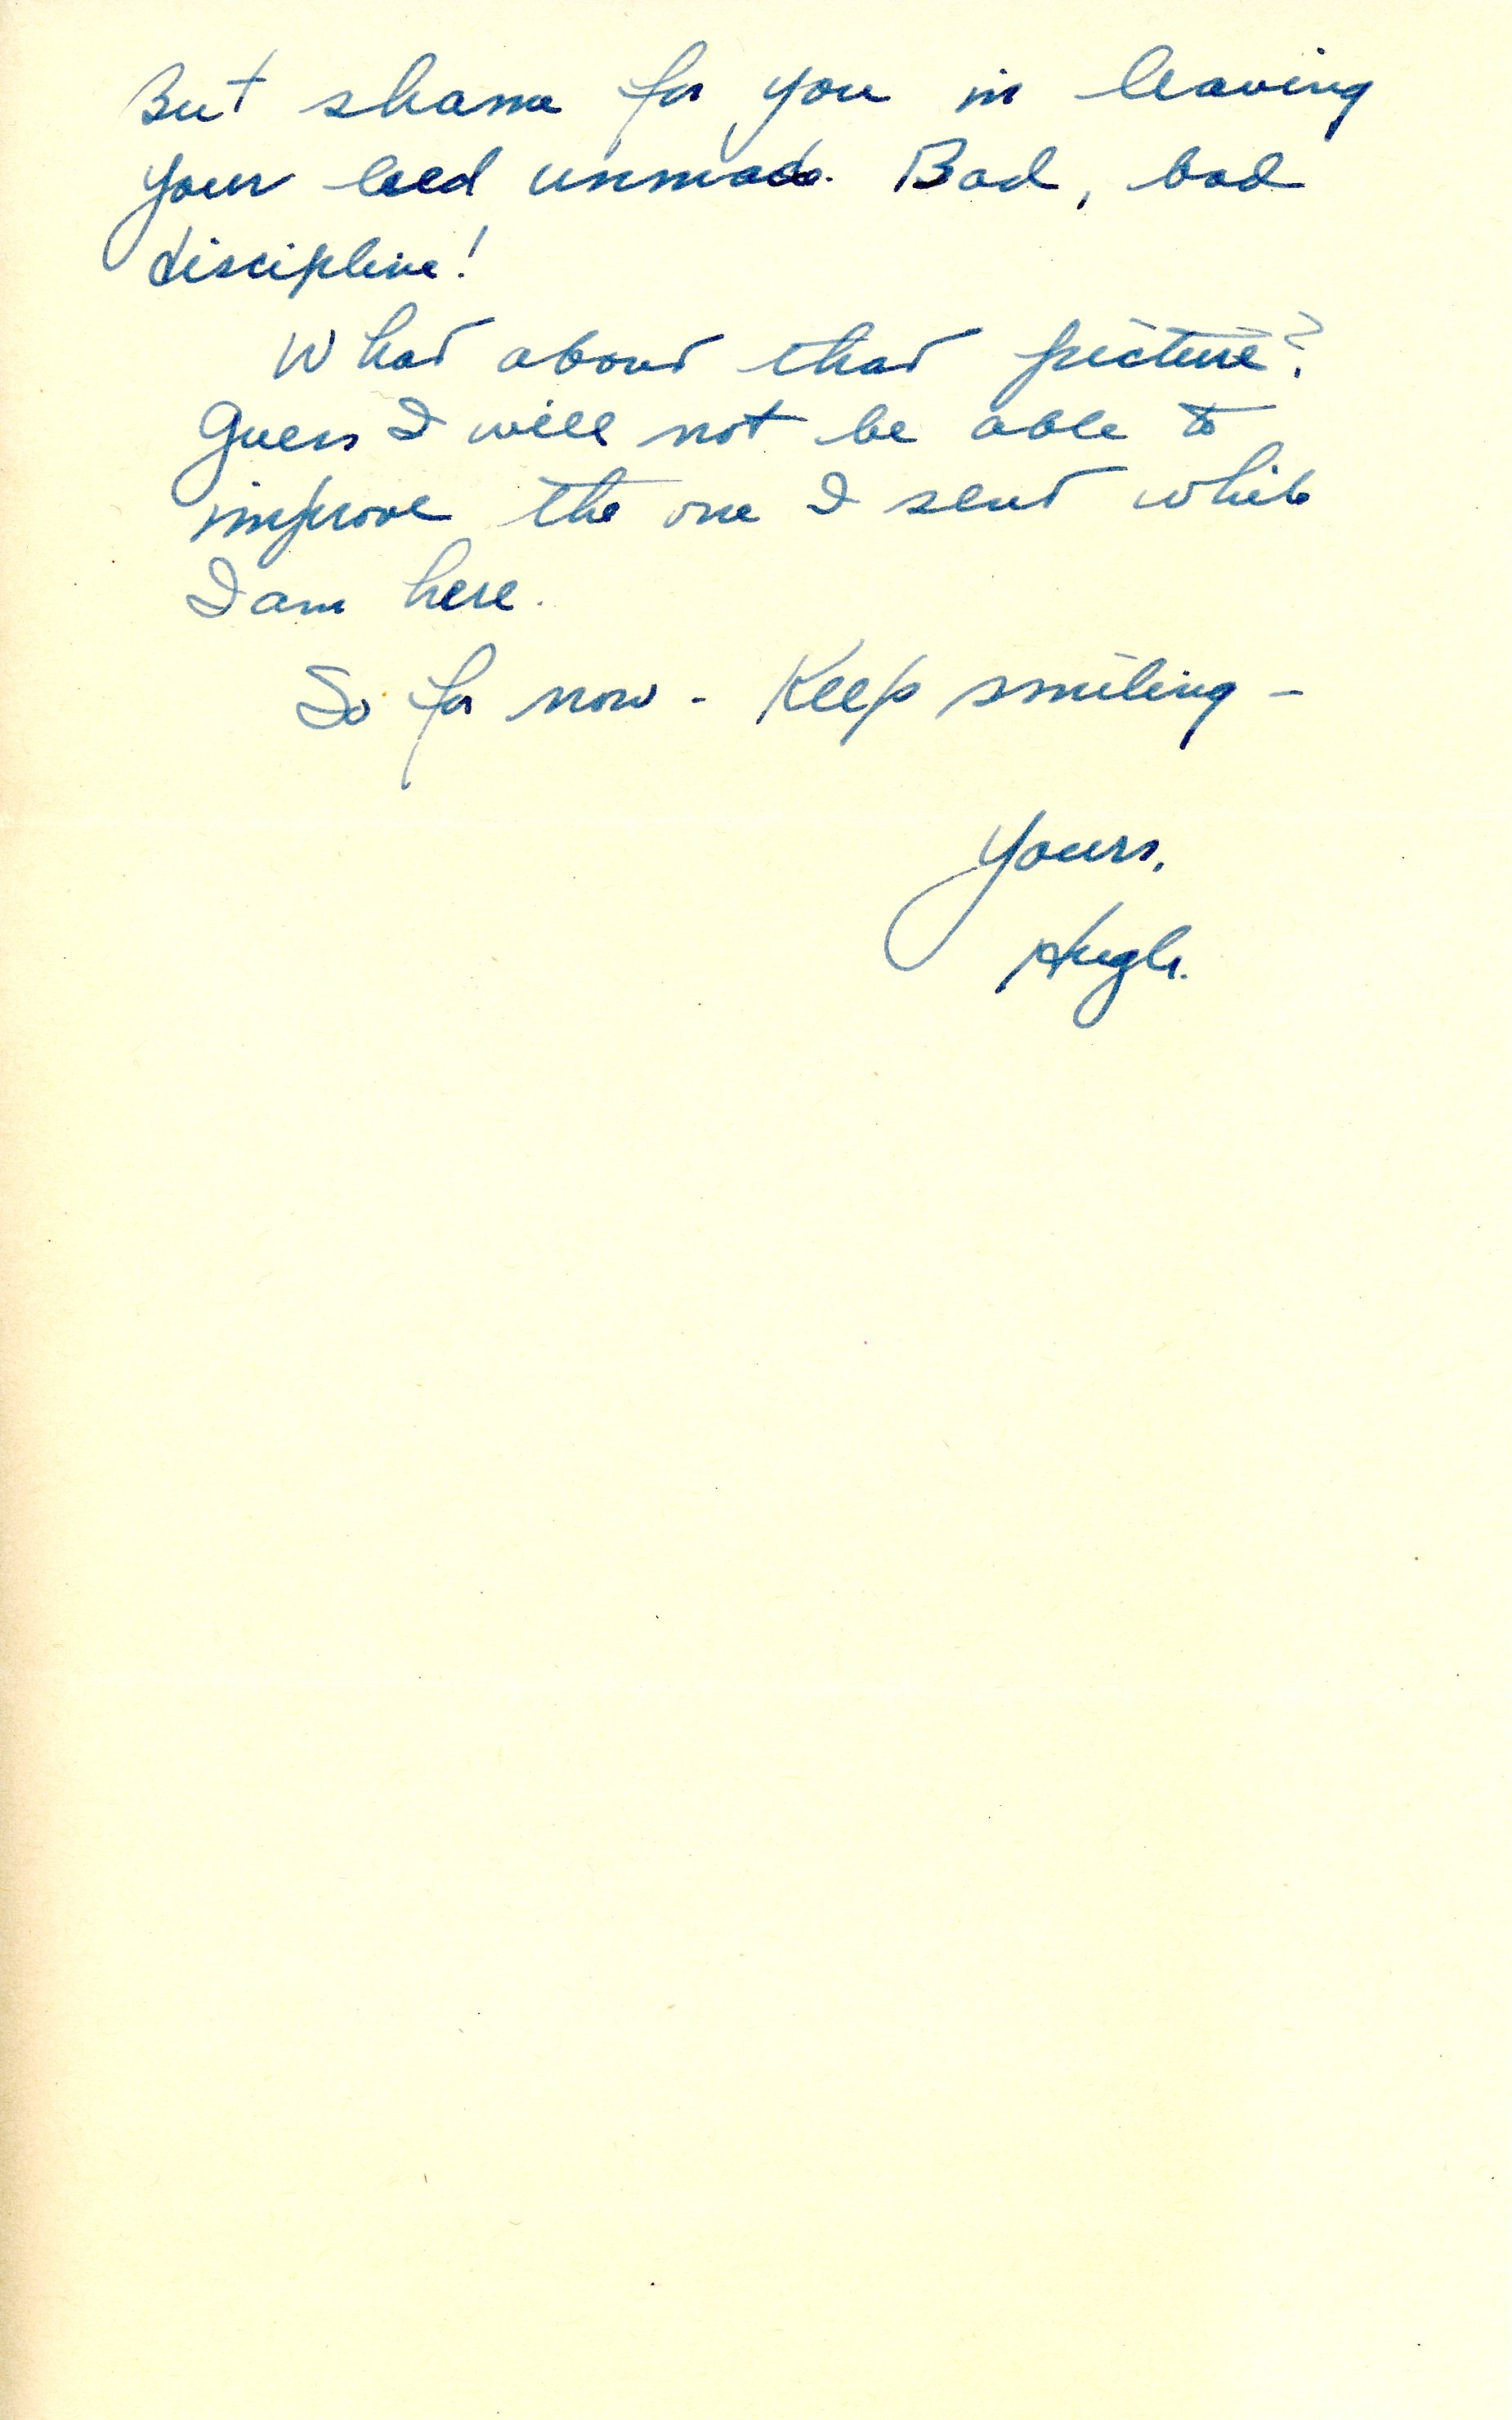 But shame for you in leaving
your bed unmade. Bad, bad
discipline!
What about that picture?
Guess I will not be able to
improve the one I sent while
I am here.
So for now - Keep smiling -
Yours,
Hugh.